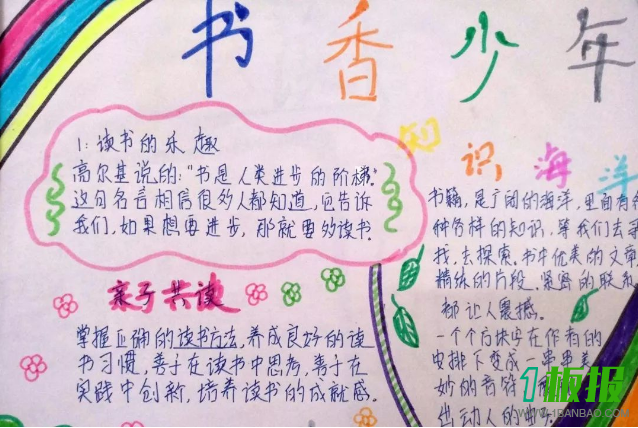 书香少年
1：读书的乐趣
高尔基说的："书是人类进步的阶梯。"
这句名言相信很多人都知道，它告诉
我们，如果想要进步，那就要多读书。
亲子共读
掌握正确的读书方法，养成良好的读
书习惯，善于在读书中思考，善于在
实践中创新，培养读书的成就感。
知识海洋
书籍，是广阔的海洋，里面有各
种各样的知识，等我们去寻
找，去探索。书中优美的文章
精练的片段，紧密的联系
都让人震撼。
一个个方块字在作者的
安排下变成一串串美
妙的音符
出动人的曲
1板报
WWW.1BANBAO.COM